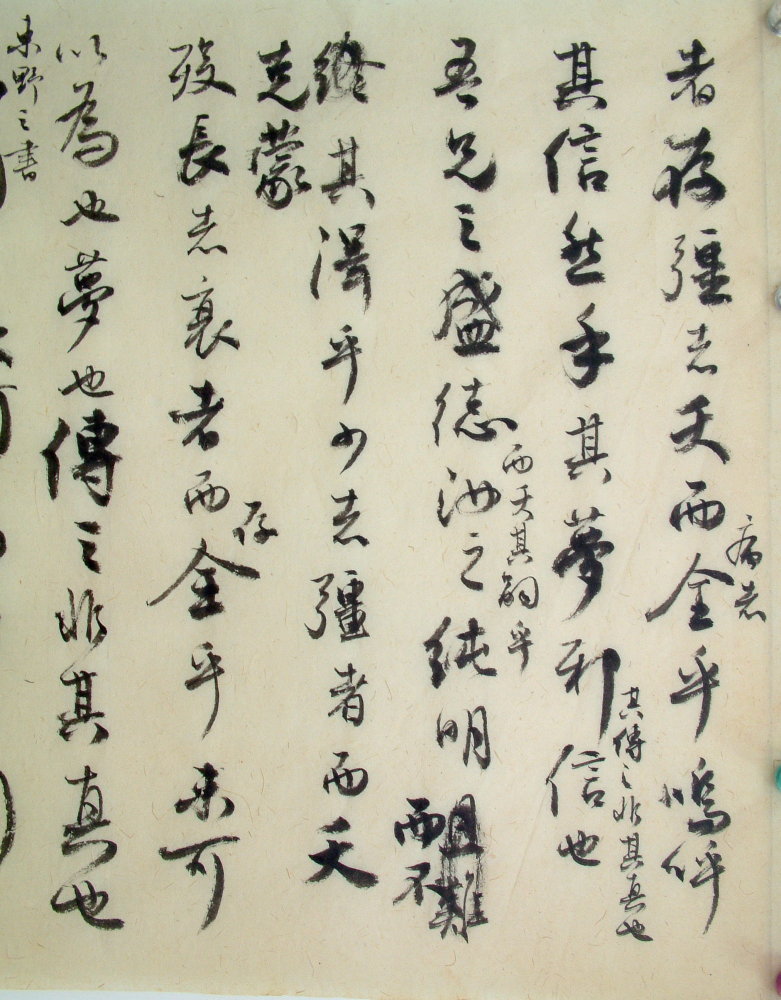 者存彊者夭而全乎嗚呼
病者
其信然乎其夢邪信也
其傳之非其真也
吾兄之盛德汝之純明
而夭其嗣乎
而不
克蒙
其澤乎少者彊者而夭
歿長者衰者而全乎未可
存
以為也夢也傳之非其真也
東野之書